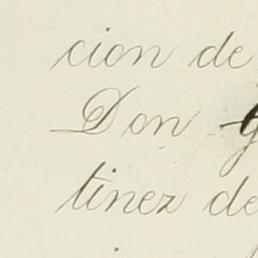 cion de
Don
tinez de